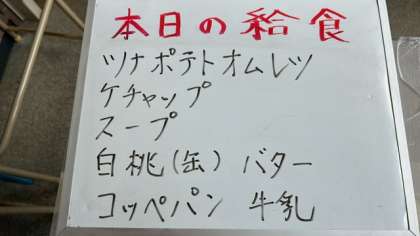 本日の給食
ツナポテトオムレツ
ケチャップ
スープ
白桃(缶) バター
コッペパン 牛乳